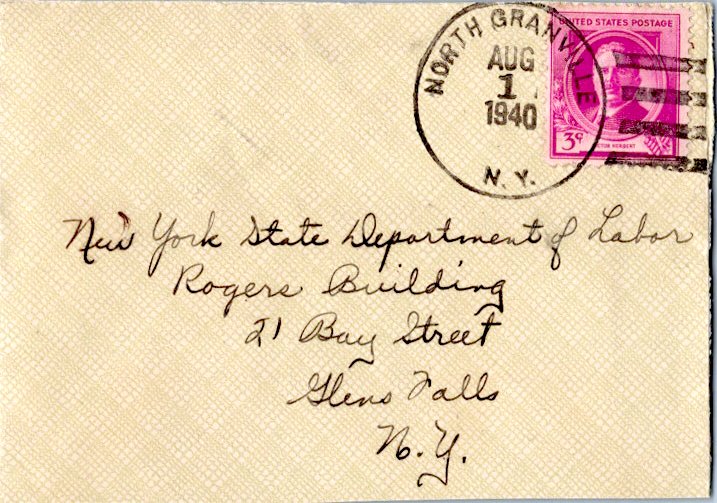 UNITED STATES POSTAGE
NORTH GRANVILLE
AUG
1
1940
N. Y.
3¢
VICTOR HERBERT
New York State Department of Labor
Rogers Building
21 Bay Street
Glens Falls
N.Y.